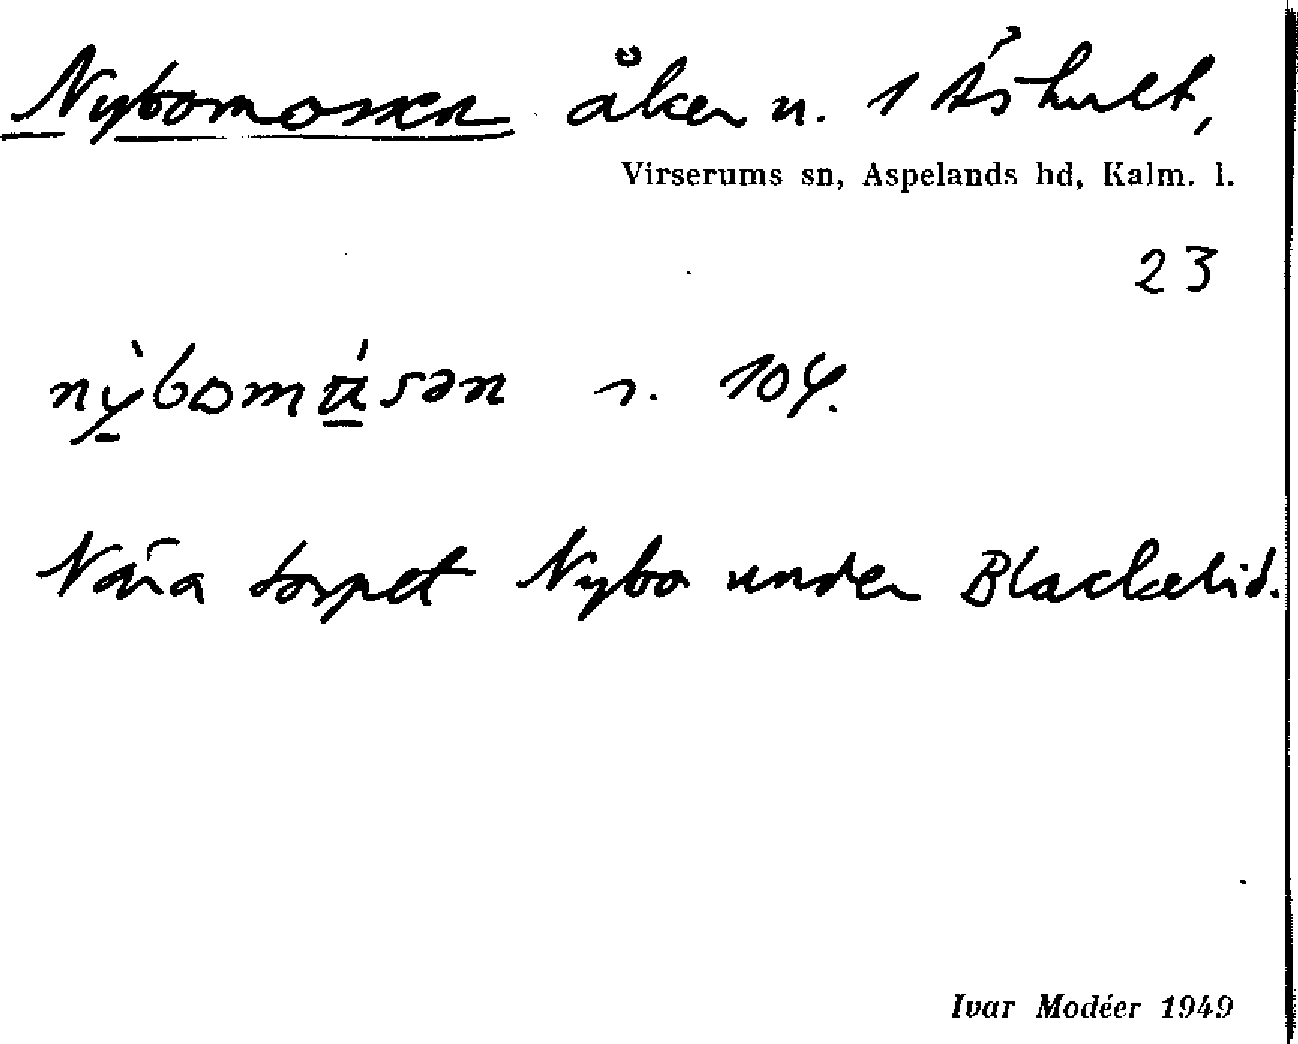 Nybomossen åker n. 1 Åshult,
Virserums sn, Aspelands hd, Kalm. l.
23
s. 104.
Nära torpet Nybo under Blackelid.
Ivar Modéer 1949